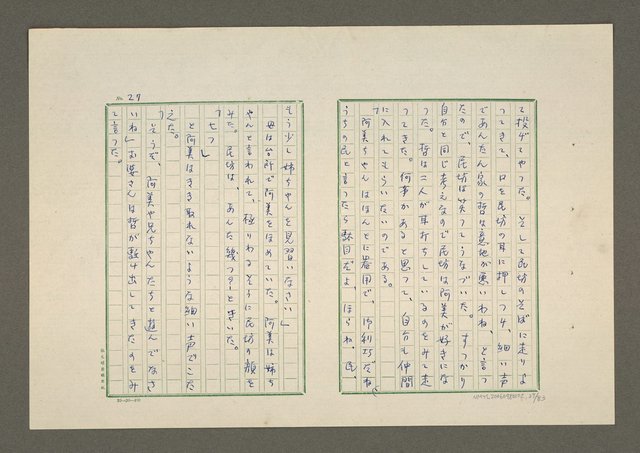 て投げてやった。そして民坊のそばに走りよ
ってきて、口を民坊の耳に押しつけ、細い声
であんたん家の哲は意地が悪いわね、と言っ
たので、民坊は笑ってうなづいた。すっかり
自分と同じ考えなので民坊は阿美が好きにな
った。哲は二人が耳打ちしているのをみて走
ってきた。何事かあると思って、自分も仲間
に入れてもらいたいのである。
「阿美ちゃんはほんとに器用で、御利巧だね、
うちの民と言ったら駄目だよ ほられ 民、
No. 27
もう少し姉ちゃんを見習いなさい」
母は台所で阿美をほめていた。阿美は姉ち
ゃんと言われて、極りわるそうに民坊の顔を
みた。民坊は、あんた幾つ?とききいた。
「七つ」
と阿美はきき取れないような細い声でこた
えた。
「そうで、阿美や兄ちゃんたちと遊んでなさ
いね」お婆さんは哲が駆け出してきたのをみ
て言った。